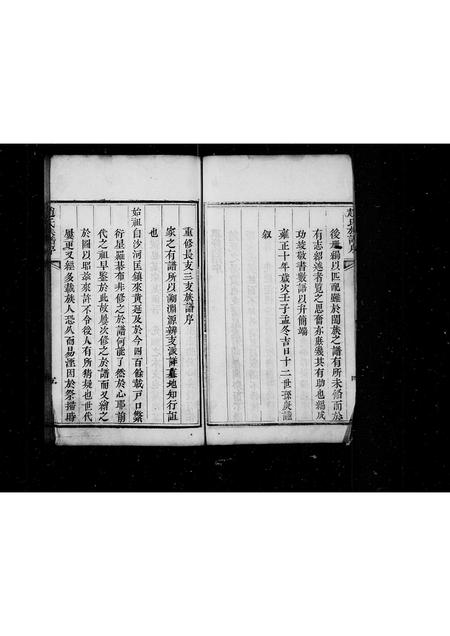 趙氏族譜序
後
以匹配雖於闔族之譜有所未脩而於
有志卻述者覽之思奮亦庶幾其有助也編成
功竣敬書數語以弁簡端
雍正十年歲次壬子孟冬吉日十二世孫
叙
重修長支三支族譜序
家之有譜所以溯淵源辨支派詳墓地知行誼
也
始祖自沙河匡鎮來黃延及於今四百餘載戸口繁
衍星羅碁布非修之於譜何能了然於心耶前
代之祖早鑒於此故屢次修之於譜而又繪之
於圖以昭茲來許不令後人有所疑也世代
屢更又經多載族人忩人而易湮因於祭掃時